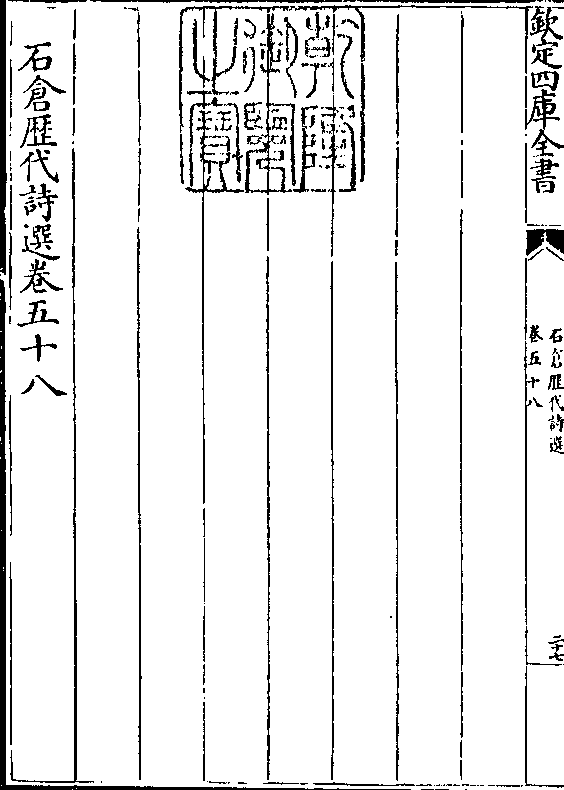 欽定四庫全書
石倉歷代詩選
卷五十八
二十七
乾隆
御覽
之寶
石倉歴代詩選卷五十八